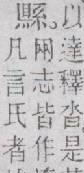 以達釋沓是
縣。
兩志皆作
凡言氏者